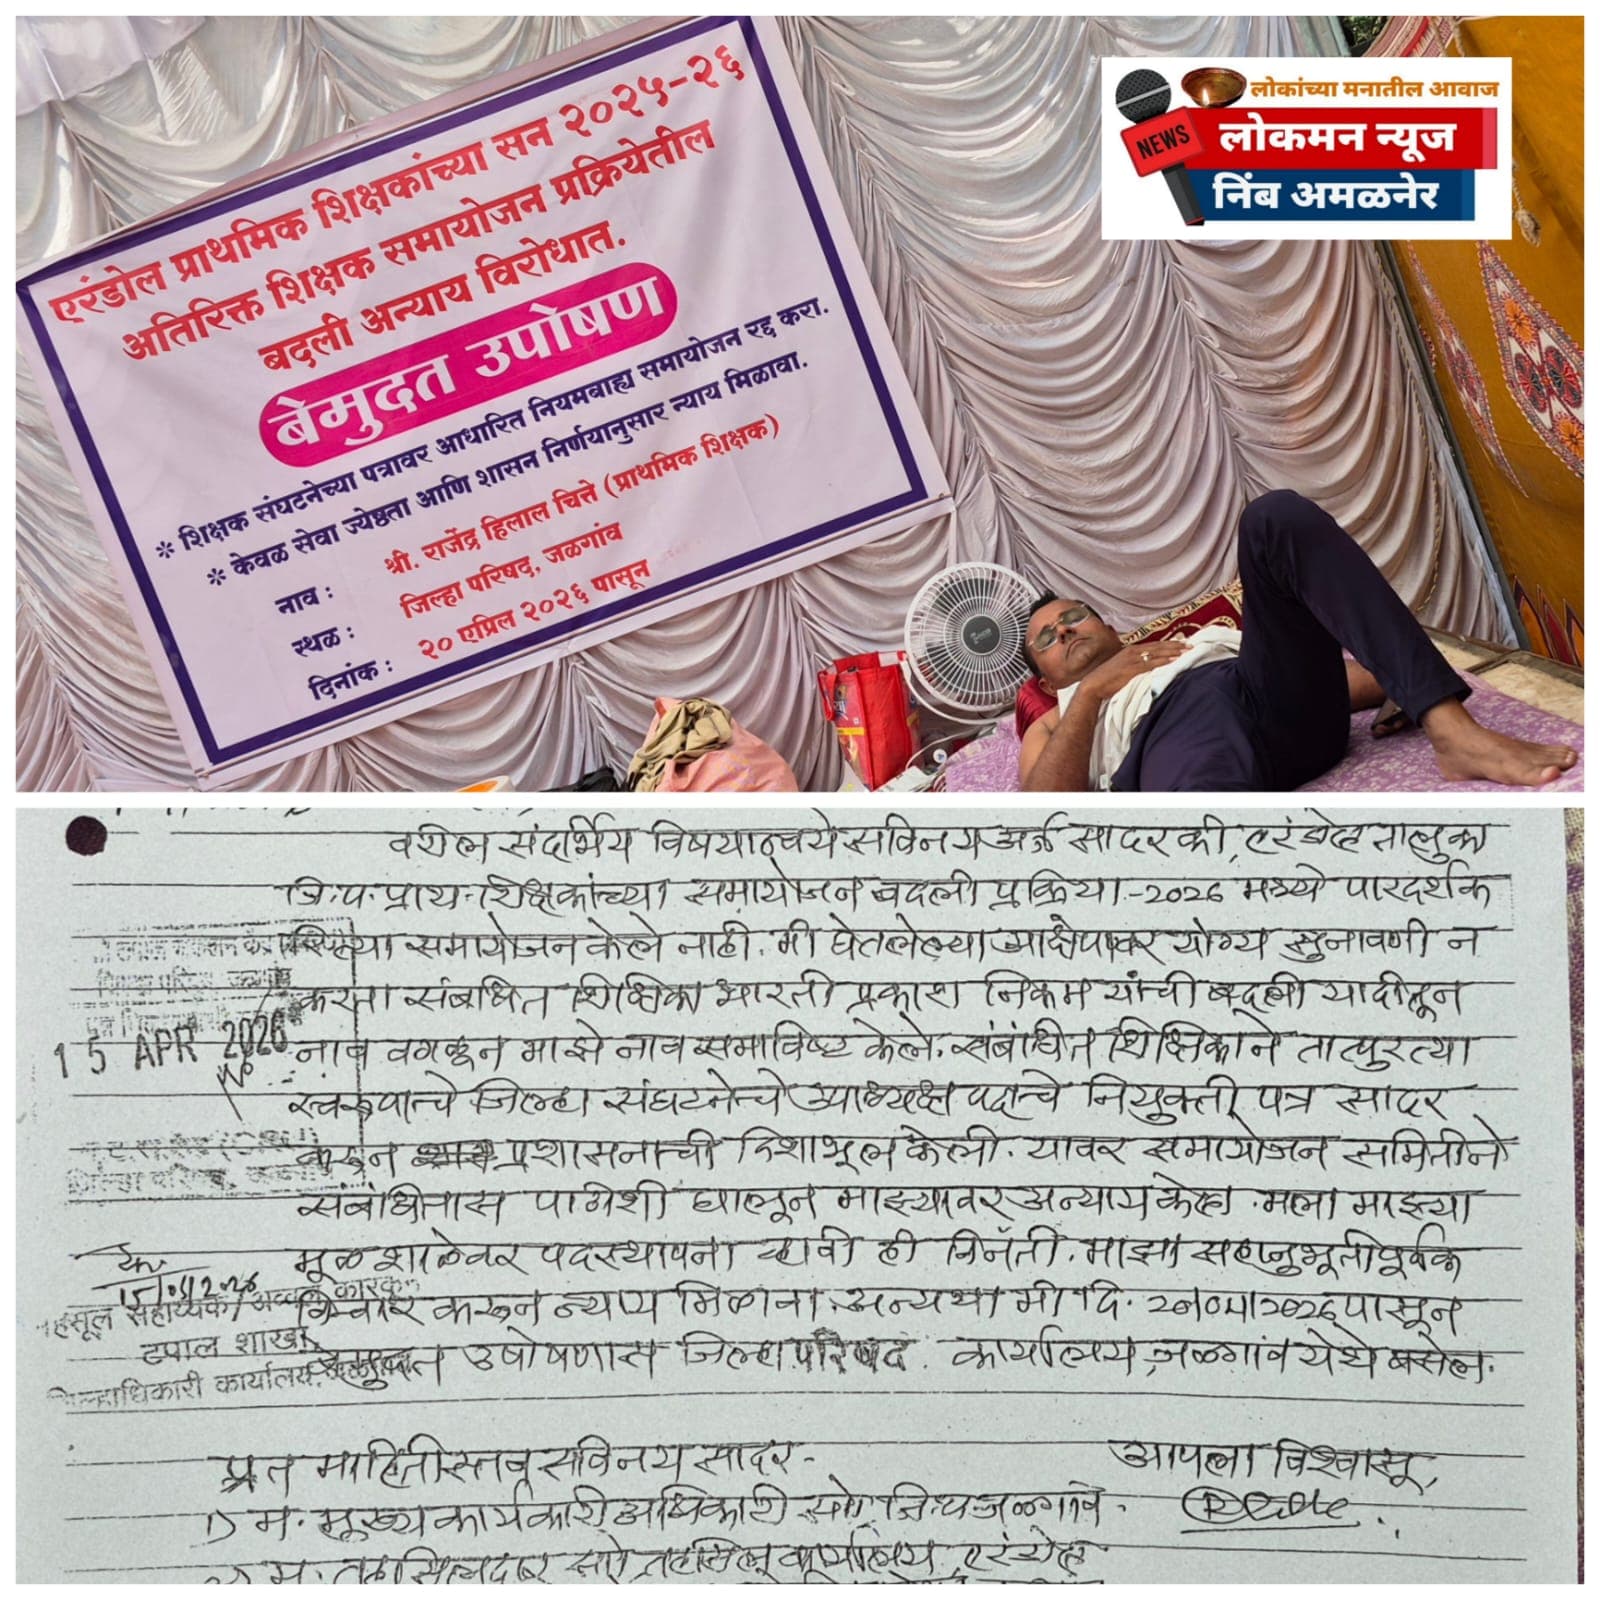 एरंडोल प्राथमिक शिक्षकांच्या सन २०२५-२६
अतिरिक्त शिक्षक समायोजन प्रक्रियेतील
बदली अन्याय विरोधात.
बेमुदत उपोषण
* शिक्षक संघटनेच्या पत्रावर आधारित नियमबाह्य समायोजन रद्द करा.
* केवळ सेवा ज्येष्ठता आणि शासन निर्णयानुसार न्याय मिळावा.
नाव : श्री. राजेंद्र हिलाल चित्ते (प्राथमिक शिक्षक)
स्थळ : जिल्हा परिषद, जळगांव
दिनांक : २० एप्रिल २०२६ पासून
लोकांच्या मनातील आवाज
NEWS
लोकमन न्यूज
निंब अमळनेर
वरील संदर्भिय विषयान्वये सविनय अर्ज सादर की, एरंडोल तालुका
जि.प. प्राथ. शिक्षकांच्या समायोजन बदली प्रक्रिया-2026 मध्ये पारदर्शक
समायोजन केले नाही. मी घेतलेल्या आक्षेपावर योग्य सुनावणी न
करता संबंधित शिक्षिका भारती प्रकाश निकम यांची बदली यादीतून
नाव वगळून माझे नाव समाविष्ट केले. संबंधित शिक्षिकाने तात्पुरत्या
स्वरूपाचे जिल्हा संघटनेचे उपाध्यक्ष पदाचे नियुक्ती पत्र सादर
करून प्रशासनाची दिशाभूल केली. यावर समायोजन समितीने
संबंधितास पाठीशी घालून माझ्यावर अन्याय केला. मला माझ्या
मूळ शाळेवर पदस्थापना व्हावी ही विनंती. माझा सहानुभूतीपूर्वक
विचार करून न्याय मिळावा. अन्यथा मी दि. पासून
बेमुदत उपोषणास जिल्हा परिषद कार्यालय, जळगांव येथे बसेल.
15 APR 2026
महसूल सहाय्यक/अव्वल कारकून
टपाल शाखा
जिल्हाधिकारी कार्यालय
प्रत माहितीस्तव सविनय सादर-
आपला विश्वासू,
1) म. मुख्य कार्यकारी अधिकारी सो, जि.प. जळगांव.
2) म. तहसिलदार सो तहसिल कार्यालय, एरंडोल